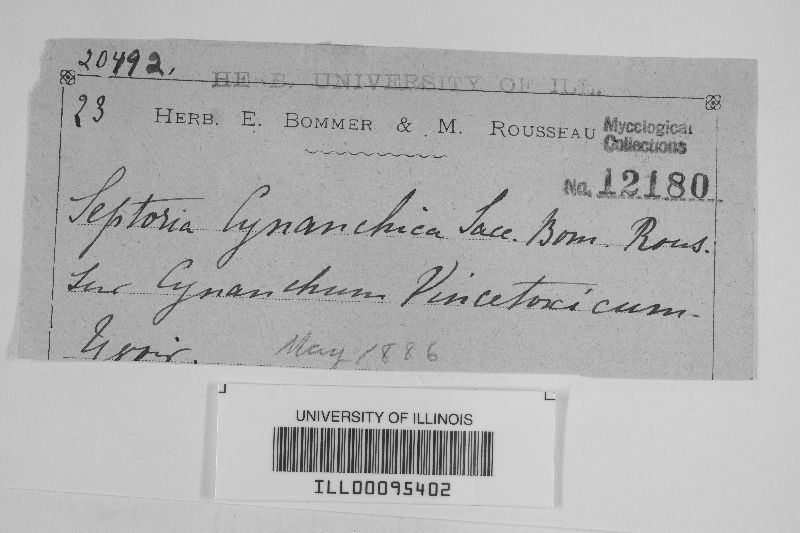 20492.
HERB. UNIVERSITY OF ILL.
23
HERB. E. BOMMER & M. ROUSSEAU
Mycological
Collections
No. 12180
Septoria Cynanchica Sacc. Bom. Rous.
sur Cynanchum Vincetoxicum-
Yvoir. May 1886
UNIVERSITY OF ILLINOIS
ILL00095402